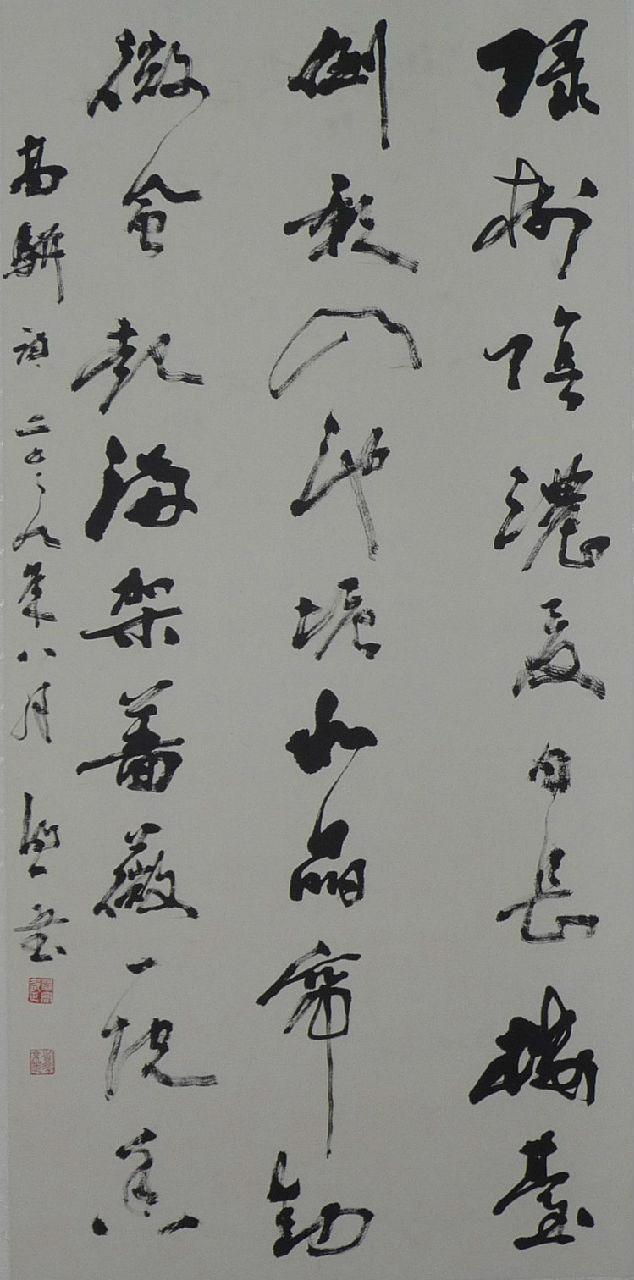 綠樹陰濃夏日長樓臺
倒影入池塘水晶帘動
微風起滿架薔薇一院香
高駢詩二〇〇九年八月書